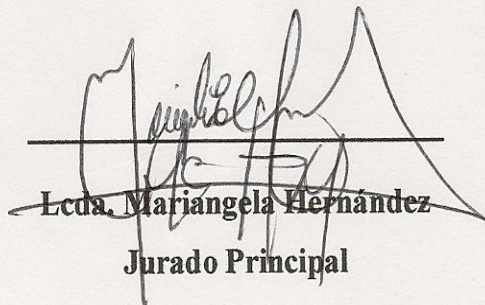 Lcda. Mariangela Hernández
Jurado Principal